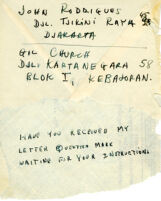 JOHN RODRIGUES
DJL. TJIKINI RAYA
DJAKARTA
GIL CHURCH
DJL. KARTANEGARA 58
BLOK I, KEBAJORAN.
HAVE YOU RECEIVED MY
LETTER QUESTION MARK
WAITING FOR YOUR INSTRUCTIONS